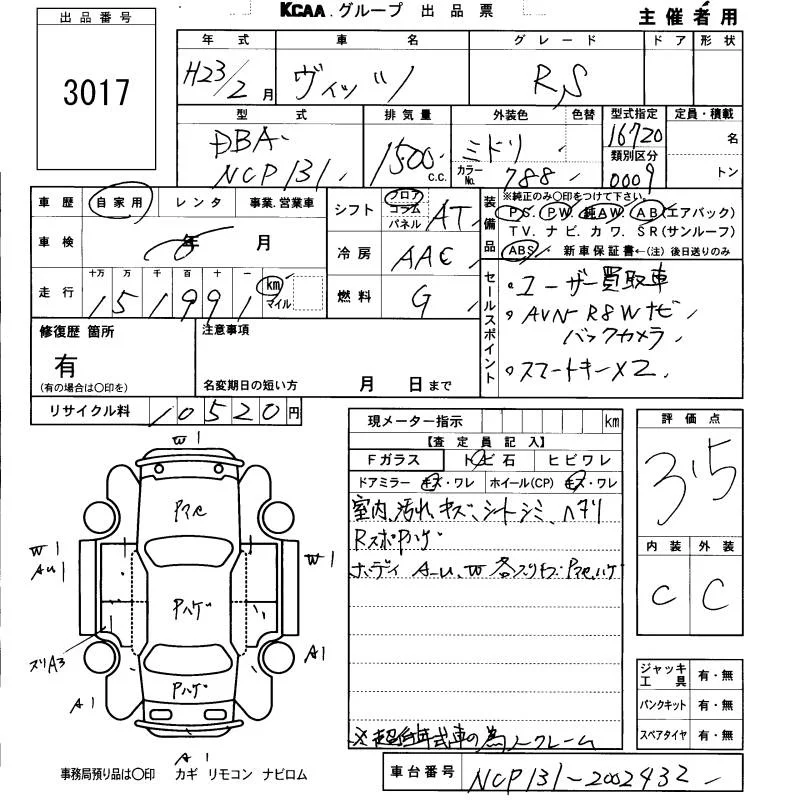 KCAA.グループ 出品票
主催者用
出品番号
3017
年式 車名 グレード ドア 形状
H23/2月 ヴィッツ RS
型式 排気量 外装色 色替 型式指定 定員・積載
DBA-
NCP131 1500 C.C. ミドリ カラーNo. 788 16720 名
類別区分
0009 トン
車歴 自家用 レンタ 事業.営業車
車検 年 月
走行 十万 万 千 百 十 一
151991 km マイル
シフト フロア コラム パネル AT
冷房 AAC
燃料 G
装備品 ※純正のみ○印をつけて下さい。
PS. PW. 純AW. AB(エアバック)
TV. ナビ. カワ. SR(サンルーフ)
ABS. 新車保証書←(注) 後日送りのみ
セールスポイント
・ユーザー買取車
・AVN-R8Wナビ
バックカメラ
・スマートキー×2
修復歴 箇所
有
(有の場合は○印を)
注意事項
名変期日の短い方 月 日まで
リサイクル料 10520円
現メーター指示 km
【査定員記入】
Fガラス トビ石 ヒビワレ
ドアミラー キズ・ワレ ホイール(CP) キズ・ワレ
室内、汚れ、キズ、シートシミ、ヘタリ
RスポPハゲ
ボディ A-u、W
※超低年式車の為ノークレーム
評価点
3.5
内装 外装
C C
ジャッキ工具 有・無
パンクキット 有・無
スペアタイヤ 有・無
車台番号 NCP131-2002432
W1
Pハゲ
Pハゲ
W1
Au1
W1
スリA3
A1
A1
A1
事務局預り品は○印 カギ リモコン ナビロム